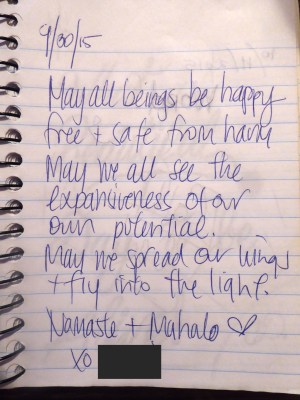 9/30/15
May all beings be happy
free + safe from harm
May we all see the
expansiveness of our
own potential.
May we spread our wings
+ fly into the light.
Namaste + Mahalo ♡
XO